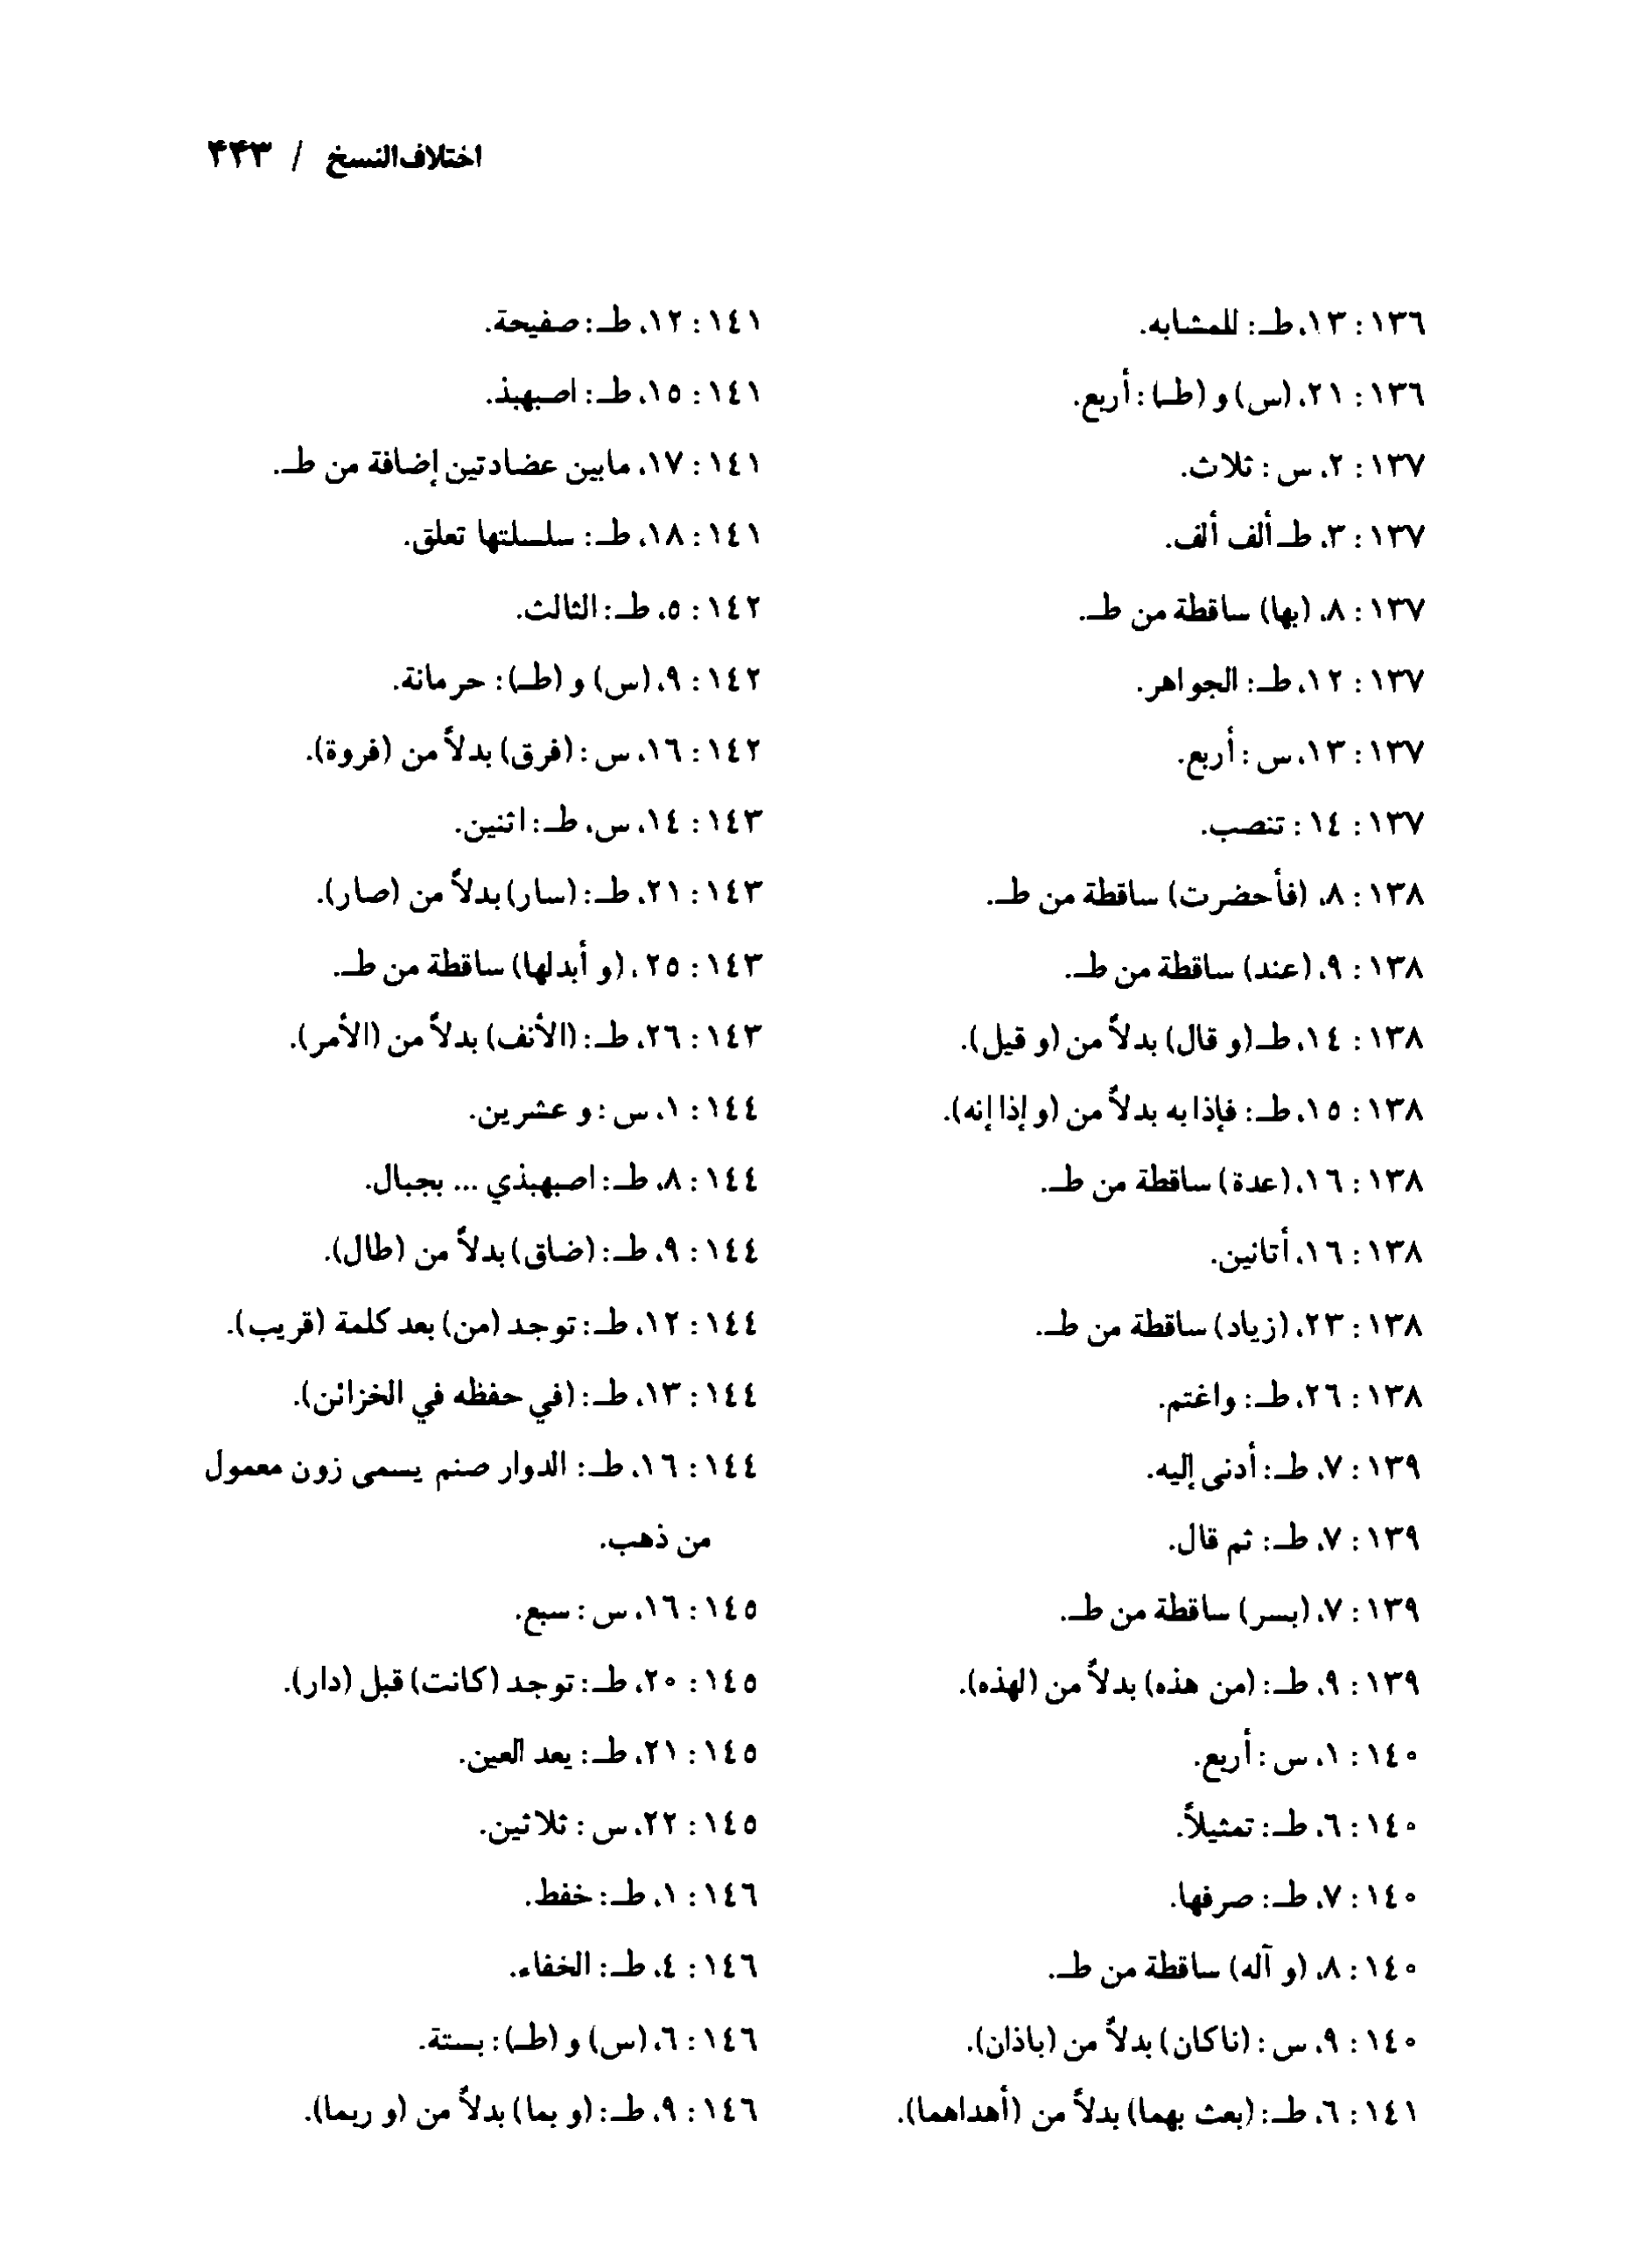 اختلاف النسخ / ۴۴۳
١٣٦ : ١٣، طـ: للمشابه.
١٣٦ : ٢١، (س) و (طـ) : أربع.
١٣٧ : ٢، س : ثلاث.
١٣٧ : ٣، طـ ألف ألف.
١٣٧ : ٨، (بها) ساقطة من طـ.
١٣٧ : ١٢، طـ: الجواهر.
١٣٧ : ١٣، س : أربع.
١٣٧ : ١٤ : تنصب.
١٣٨ : ٨، (فأحضرت) ساقطة من طـ.
١٣٨ : ٩، (عند) ساقطة من طـ.
١٣٨ : ١٤، طـ (و قال) بدلاً من (و قيل).
١٣٨ : ١٥، طـ: فإذا به بدلاً من (و إذا إنه).
١٣٨ : ١٦، (عدة) ساقطة من طـ.
١٣٨ : ١٦، أتانين.
١٣٨ : ٢٣، (زياد) ساقطة من طـ.
١٣٨ : ٢٦، طـ: واغتم.
١٣٩ : ٧، طـ: أدنى إليه.
١٣٩ : ٧، طـ: ثم قال.
١٣٩ : ٧، (بسر) ساقطة من طـ.
١٣٩ : ٩، طـ: (من هذه) بدلاً من (لهذه).
١٤٠ : ١، س : أربع.
١٤٠ : ٦، طـ: تمثيلاً.
١٤٠ : ٧، طـ: صرفها.
١٤٠ : ٨، (و آله) ساقطة من طـ.
١٤٠ : ٩، س : (ناكان) بدلاً من (باذان).
١٤١ : ٦، طـ: (بعث بهما) بدلاً من (أهداهما).
١٤١ : ١٢، طـ: صفيحة.
١٤١ : ١٥، طـ: اصبهبذ.
١٤١ : ١٧، مابين عضادتين إضافة من طـ.
١٤١ : ١٨، طـ: سلسلتها تعلق.
١٤٢ : ٥، طـ: الثالث.
١٤٢ : ٩، (س) و (طـ): حرمانة.
١٤٢ : ١٦، س : (فرق) بدلاً من (فروة).
١٤٣ : ١٤، س، طـ: اثنين.
١٤٣ : ٢١، طـ: (سار) بدلاً من (صار).
١٤٣ : ٢٥، (و أبدلها) ساقطة من طـ.
١٤٣ : ٢٦، طـ: (الأنف) بدلاً من (الأمر).
١٤٤ : ١، س : و عشرين.
١٤٤ : ٨، طـ: اصبهبذي ... بجبال.
١٤٤ : ٩، طـ: (ضاق) بدلاً من (طال).
١٤٤ : ١٢، طـ: توجد (من) بعد كلمة (قريب).
١٤٤ : ١٣، طـ: (في حفظه في الخزائن).
١٤٤ : ١٦، طـ: الدوار صنم يسمى زون معمول
من ذهب.
١٤٥ : ١٦، س : سبع.
١٤٥ : ٢٠، طـ: توجد (كانت) قبل (دار).
١٤٥ : ٢١، طـ: يعد العين.
١٤٥ : ٢٢، س : ثلاثين.
١٤٦ : ١، طـ: خفط.
١٤٦ : ٤، طـ: الخفاء.
١٤٦ : ٦، (س) و (طـ): بستة.
١٤٦ : ٩، طـ: (و بما) بدلاً من (و ربما).